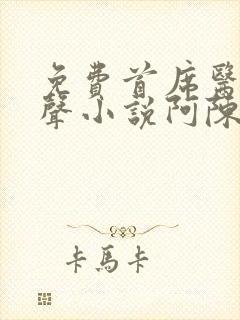 免費首席醫
聲小說阿陳
卡馬卡